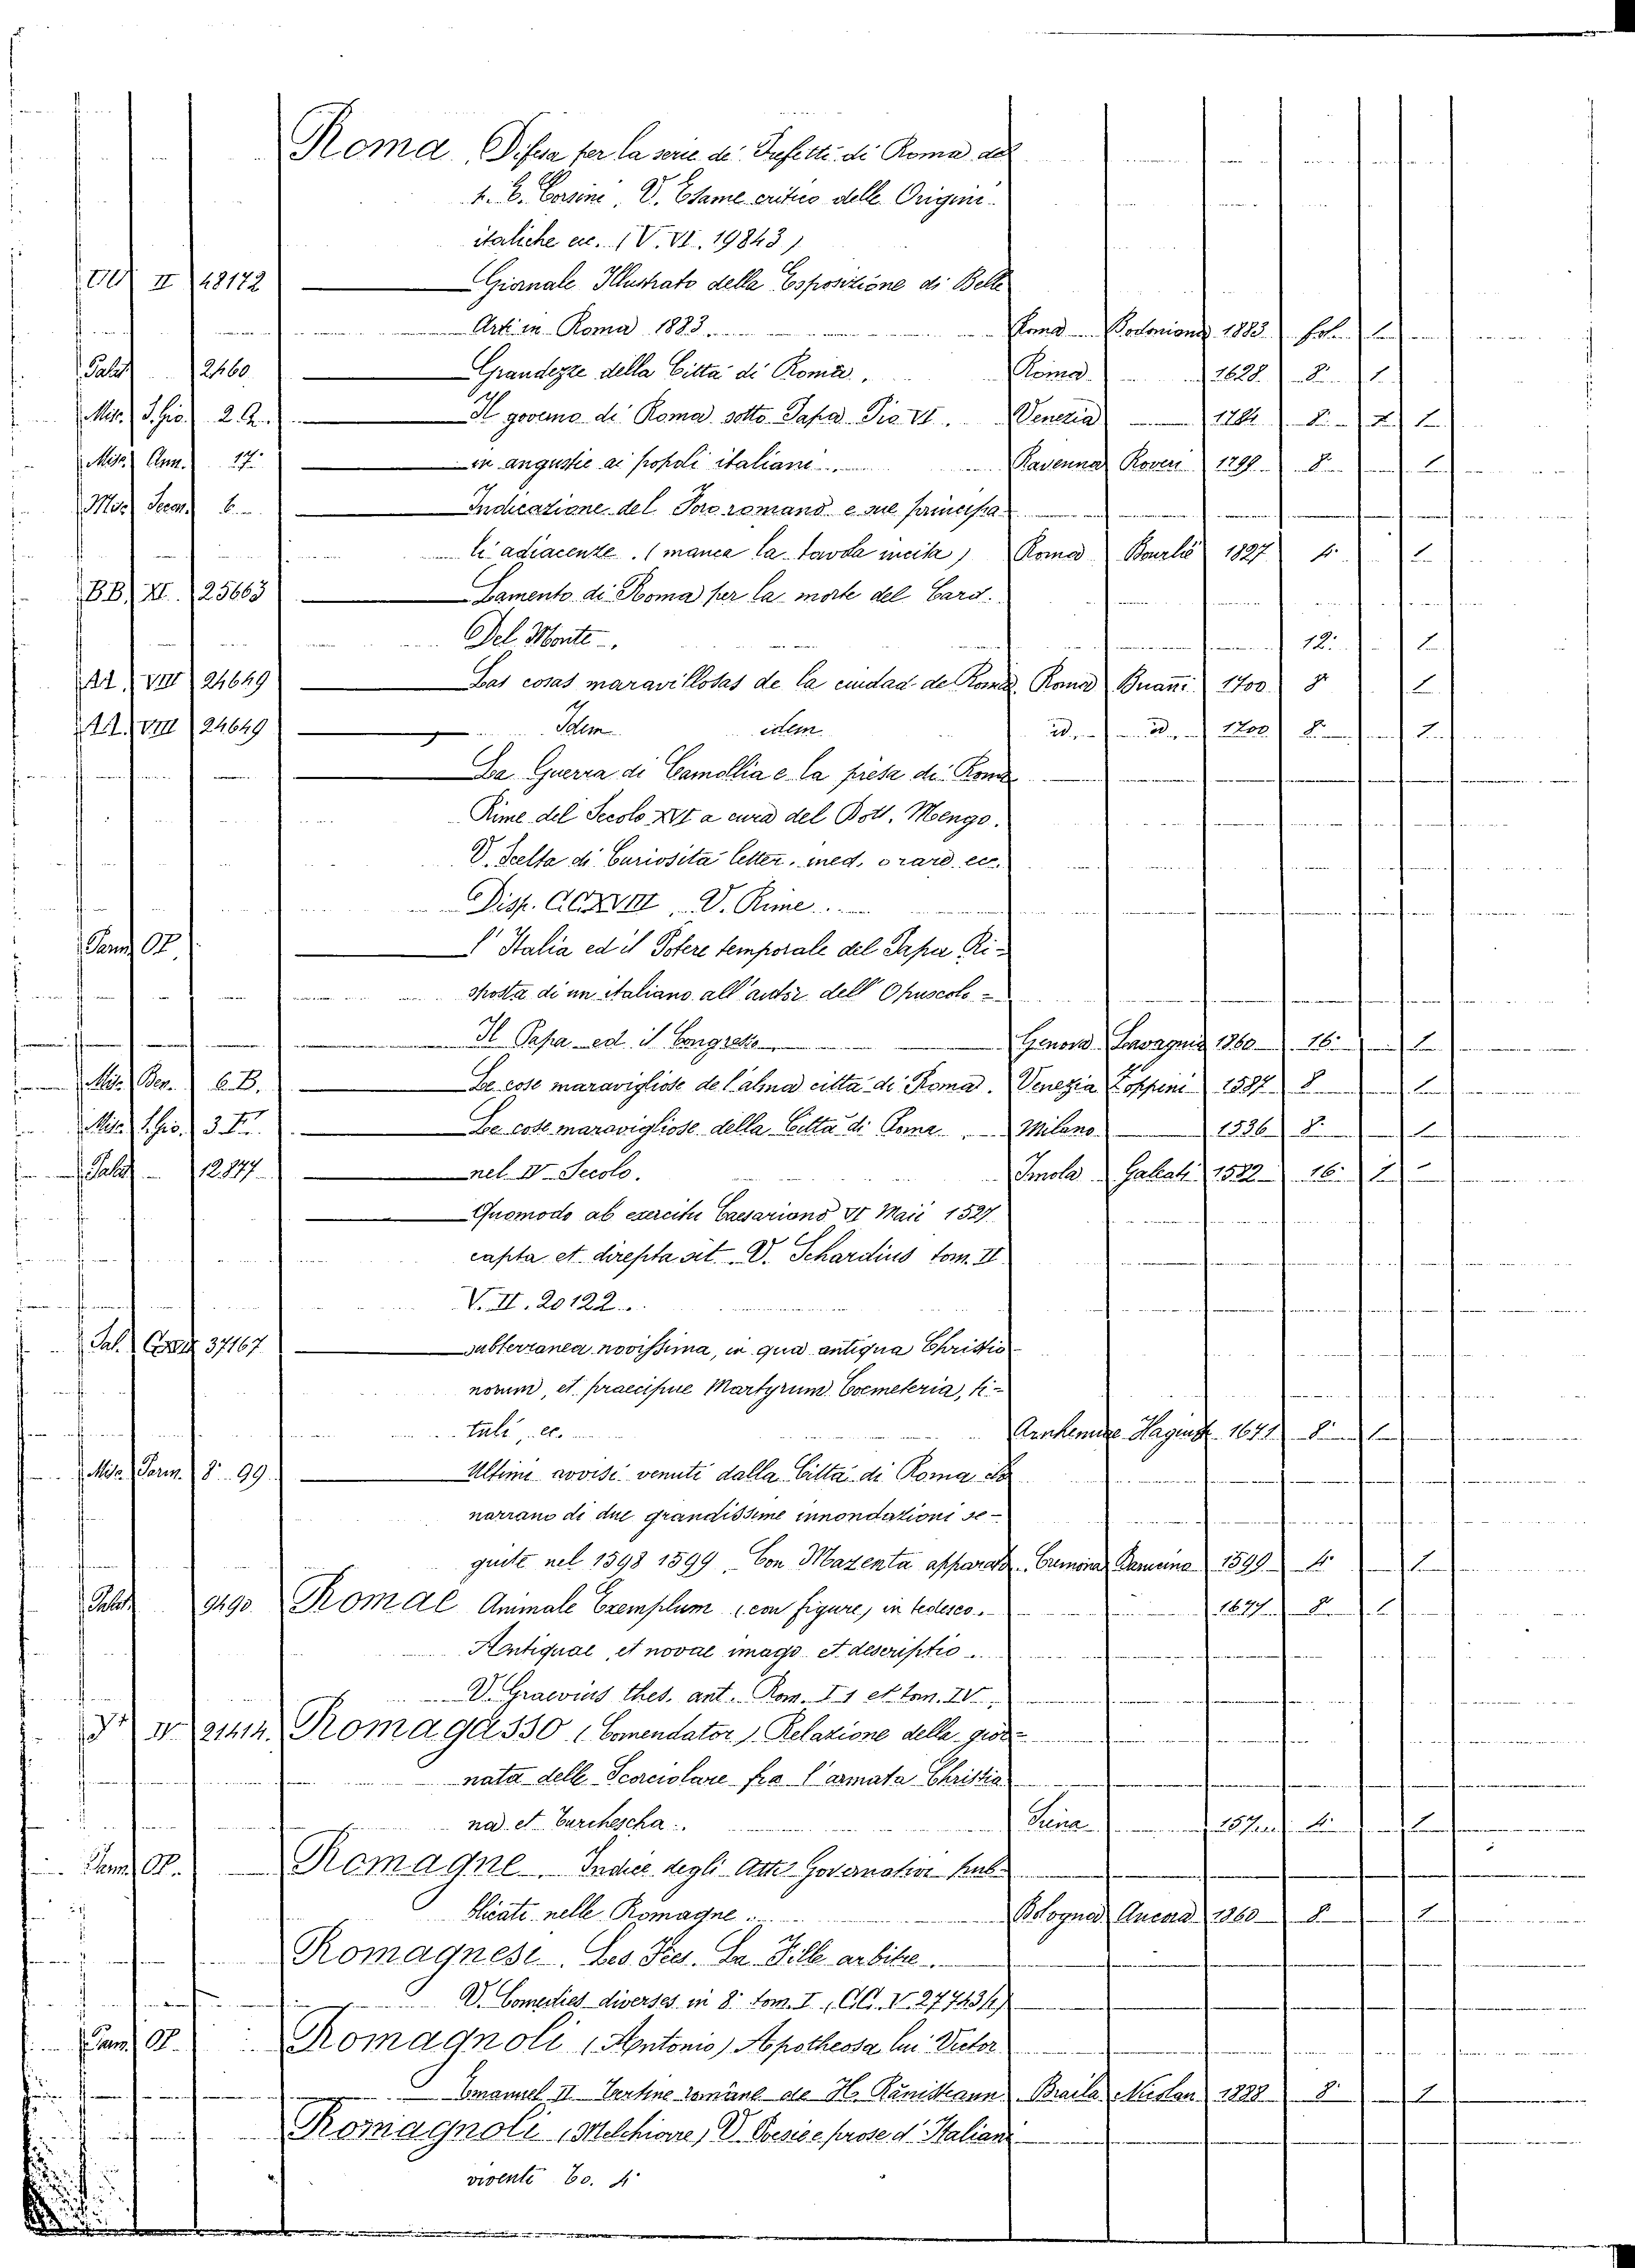 Roma, Difesa per la serie de' Prefetti di Roma del
p. E. Corsini. V. Esame critico delle Origini
italiche ec. (V. VI. 19843)
II 48172 Giornale Illustrato della Esposizione di Belle
Arti in Roma 1883. Roma 1883 fol. 1
Palat 2460 Grandezze della Città di Roma. Roma 1628 8 1
Misc. S. Gio. 2. Il governo di Roma sotto Papa Pio VI. Venezia 1784 8. 1
Misc. Ann. 17 in angustie ai popoli italiani. Ravenna Roveri 1799 8 1
Misc. 6. Indicazione del Foro romano e sue principa-
li adiacenze. (manca la tavola incisa) Roma Bourliè 1827 4. 1
BB. XI. 25663 Lamento di Roma per la morte del Card.
Del Monte. 12. 1
AA. VIII 24649 Las cosas maravillosas de la ciudad de Roma Roma Buani 1700 8 1
AA. VIII 24649 Idem idem id. id. 1700 8. 1
La Guerra di Camollia e la presa di Roma
Rime del Secolo XVI a cura del Dott. Mengo.
V. Scelta di Curiosità letter. ined. o rare ec.
Disp. V. Rime.
Pam. OP. l'Italia ed il Potere temporale del Papa Ri-
sposta di un italiano all'autor dell'Opuscolo -
Il Papa ed il Congresso Genova Lavagnin 1860 16. 1
Misc. Ben. 6. B. Le cose maravigliose de l'alma città di Roma. Venezia Zoppini 1587 8 1
Misc. S. Gio. 3. Le cose maravigliose della Città di Roma. Milano 8. 1
Palat 12877 nel IV Secolo. Imola Galeati 1582 16. 1
Quomodo ab exercitu Caesariano VI Maii 1527
capta et direpta sit. V. Schardius tom. II
V. II. 20122.
Pal. 37167 subterranea novissima, in qua antiqua Christia-
norum, et praecipue Martyrum Coemeteria, ti-
tuli, ec. Arnhemiae Hagiust. 1671 8. 1
Misc. 8. 99. Ultimi avvisi venuti dalla Città di Roma
narrano di due grandissime innondazioni se-
guite nel 1598 1599 Con Cremona 1599 4. 1
Palat 9490 Romae Animale Exemplum (con figure) in tedesco. 1677 8. 1
Antiquae, et novae imago et descriptio.
V. Graevius thes. ant. Rom. I 1 et tom. IV.
IV 21414. Romagasso (Comendator) Relazione della gior-
nata delle Scorciolare fra l'armata Christia
na et Turchescha. Siena 4. 1
Pam. OP. Romagne. Indice degli Atti Governativi pub-
blicati nelle Romagne. Bologna Ancora 1860 8 1
Romagnesi. Les Fees. La Fille arbitre.
V. Comedies diverses in 8. tom. I. V. 27743
Pam. OP. Romagnoli (Antonio) Apotheosa lui Victor
Emanuel II. romàne de H. Braila 1888 8. 1
Romagnoli (Melchiorre) V. Poesie e prose d'Italiani
viventi